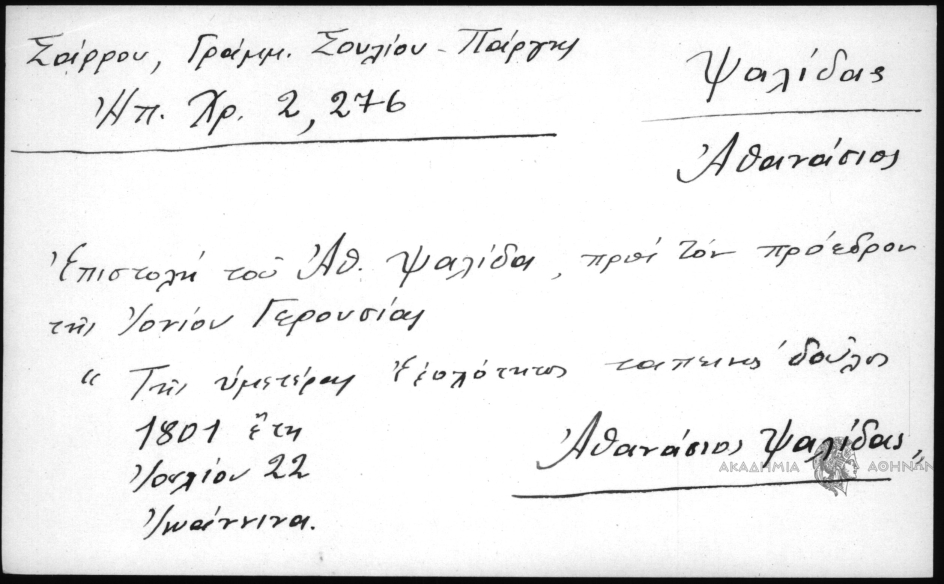 Σάρρου, Γράμμ. Σουλίου - Πάργης
Ἠπ. Χρ. 2, 276
Ψαλίδας
Ἀθανάσιος
Ἐπιστολή τοῦ Ἀθ. Ψαλίδα, πρός τόν πρόεδρον
τῆς Ἰονίου Γερουσίας
“ Τῆς ὑμετέρας Ἐξολότητος ταπεινός δοῦλος
1801 ἔτη
Ἰουλίου 22
Ἰωάννινα.
Ἀθανάσιος Ψαλίδας„
ΑΚΑΔΗΜΙΑ ΑΘΗΝΩΝ